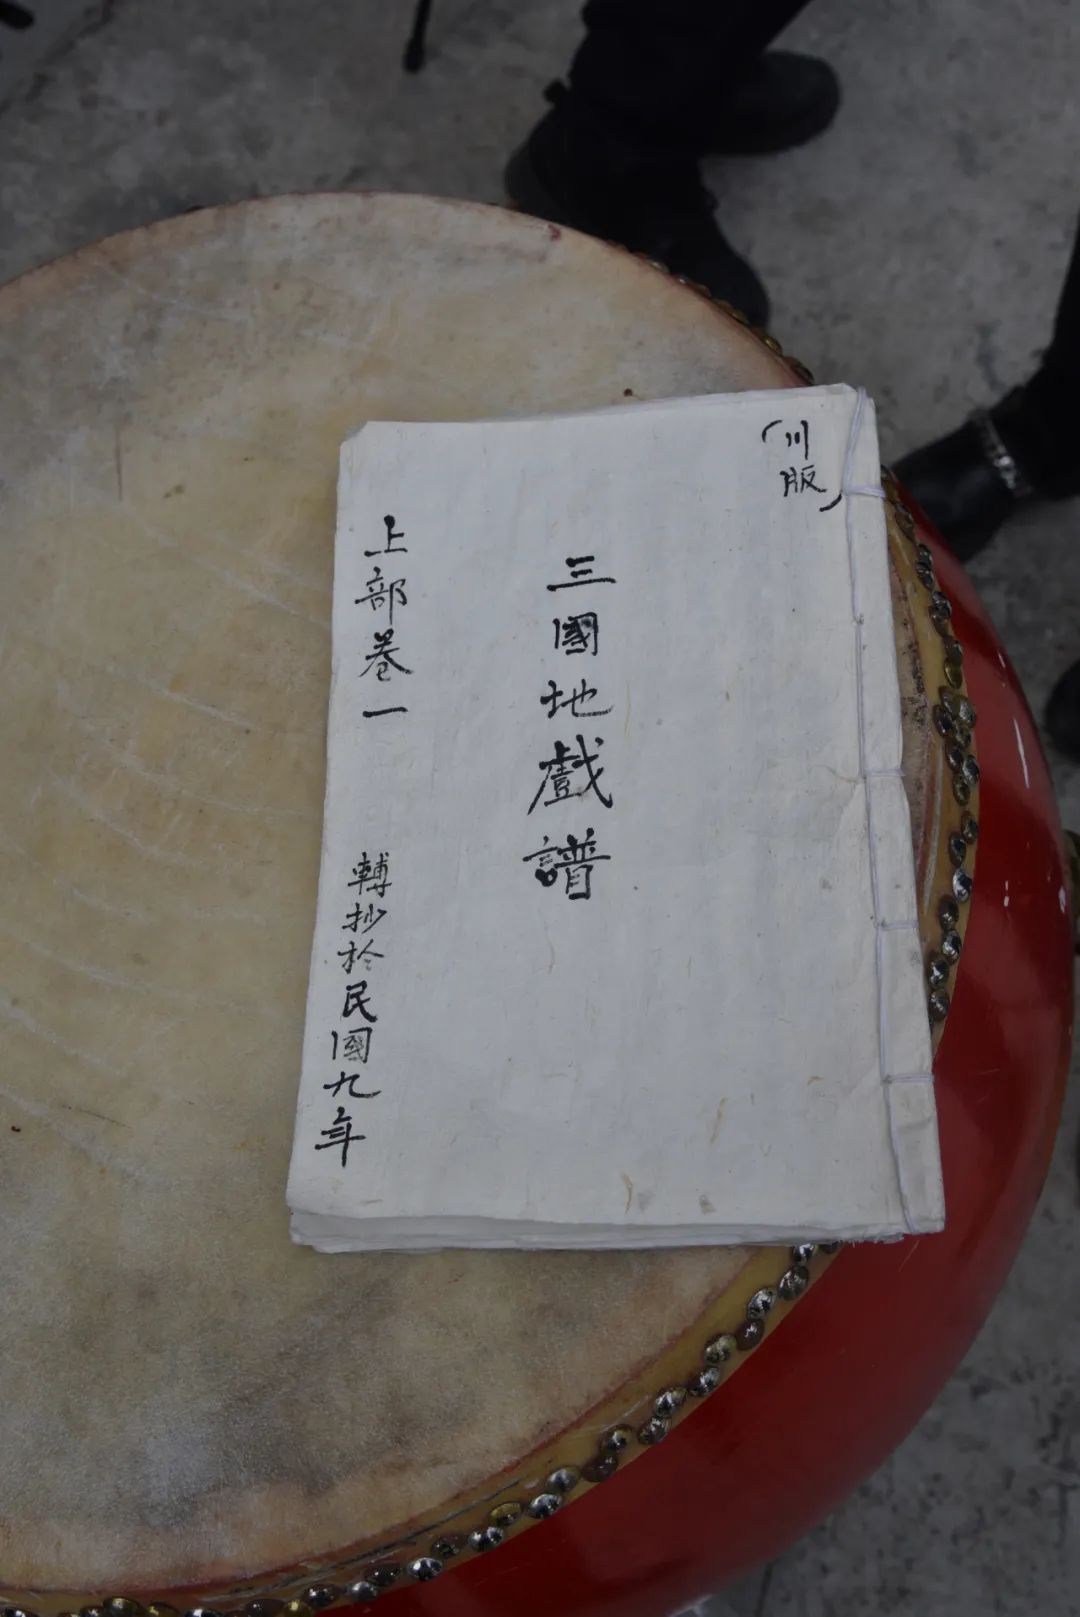 （川版）
三國地戲譜
上部卷一
轉抄於民國九年